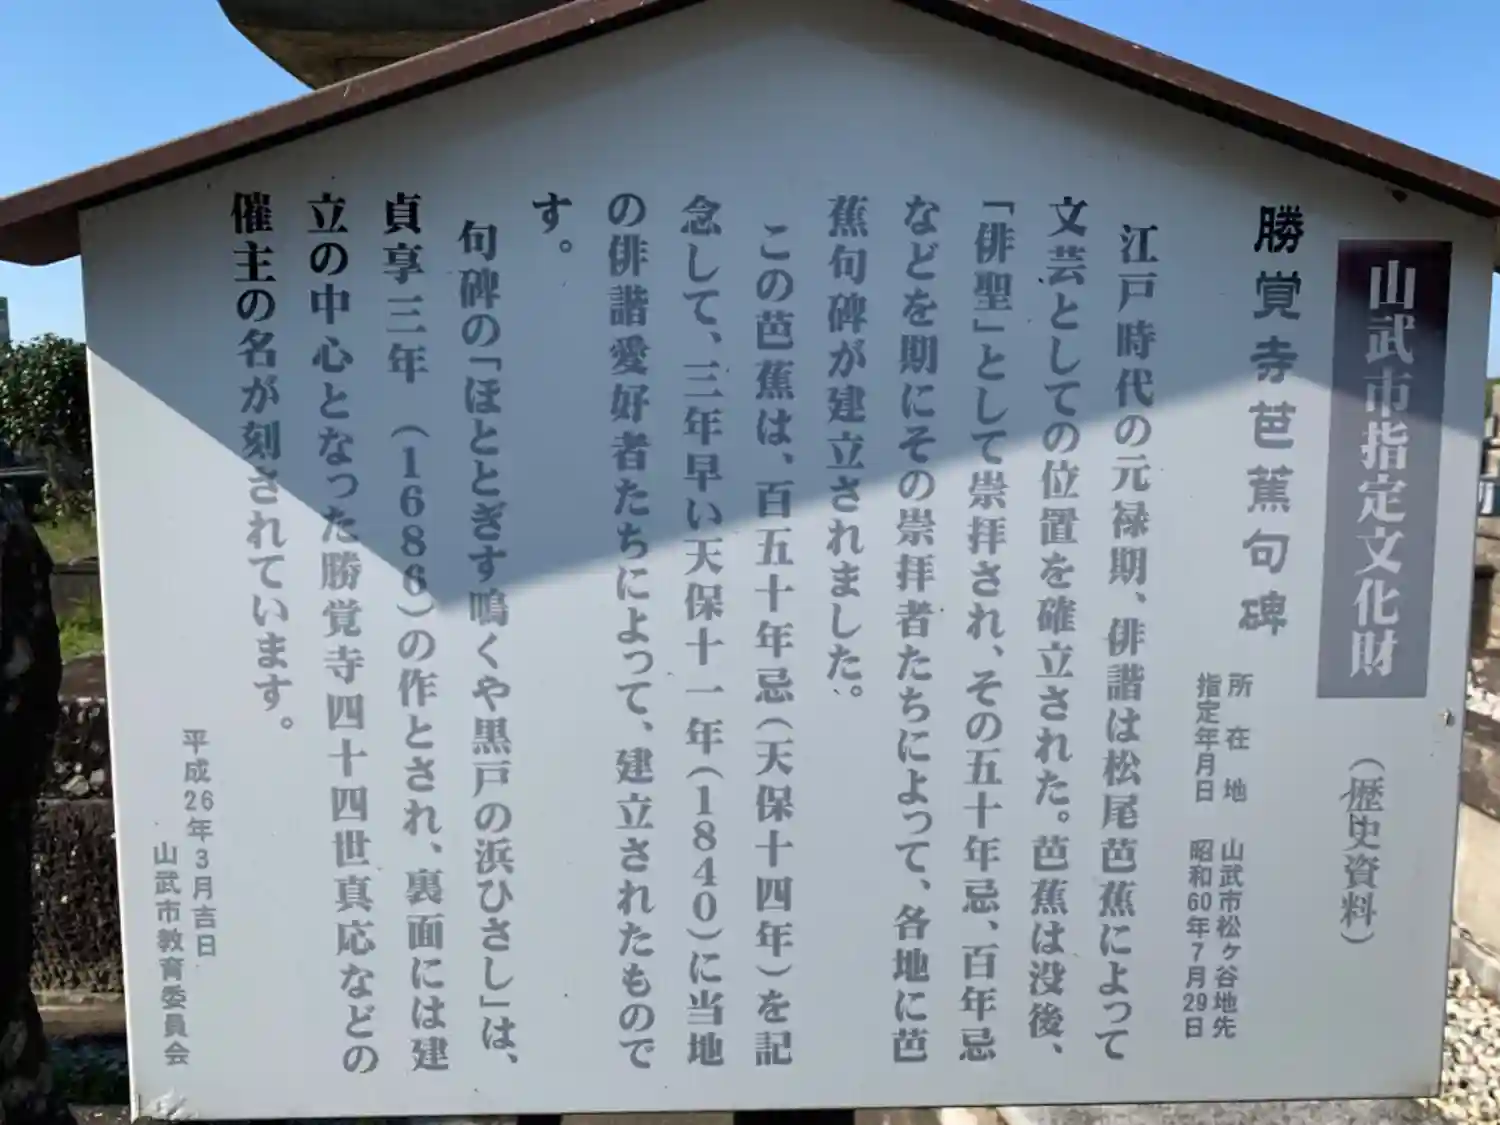 山武市指定文化財
（歴史資料）
勝覚寺芭蕉句碑
所在地　山武市松ヶ谷地先
指定年月日　昭和60年7月29日
江戸時代の元禄期、俳諧は松尾芭蕉によって
文芸としての位置を確立された。芭蕉は没後、
「俳聖」として崇拝され、その五十年忌、百年忌
などを期にその崇拝者たちによって、各地に芭
蕉句碑が建立されました。
この芭蕉は、百五十年忌（天保十四年）を記
念して、三年早い天保十一年（1840）に当地
の俳諧愛好者たちによって、建立されたもので
す。
句碑の「ほととぎす鳴くや黒戸の浜ひさし」は、
貞享三年（1686）の作とされ、裏面には建
立の中心となった勝覚寺四十四世真応などの
催主の名が刻されています。
平成26年3月吉日
山武市教育委員会